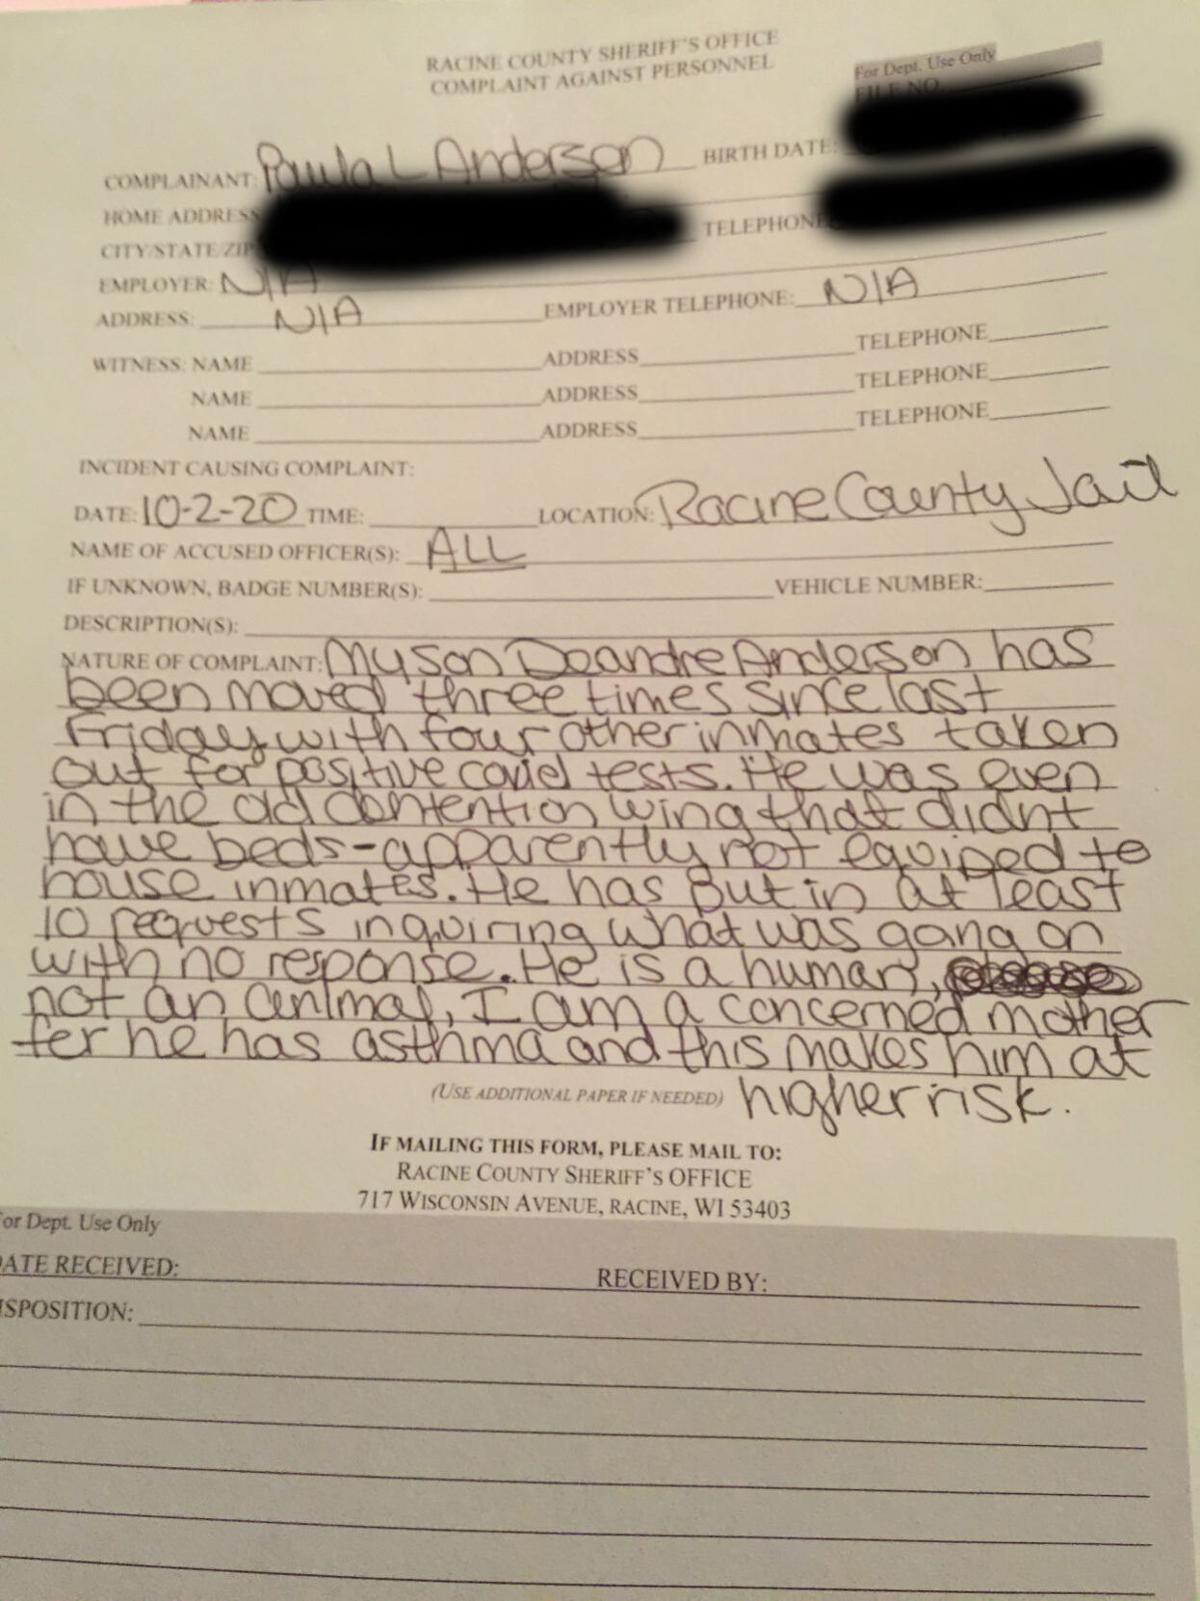 RACINE COUNTY SHERIFF'S OFFICE
COMPLAINT AGAINST PERSONNEL
For Dept. Use Only
FILE NO.
COMPLAINANT: Paula L Anderson BIRTH DATE:
HOME ADDRESS
CITY/STATE/ZIP TELEPHONE
EMPLOYER: N/A
ADDRESS: N/A EMPLOYER TELEPHONE: N/A
WITNESS: NAME ADDRESS TELEPHONE
NAME ADDRESS TELEPHONE
NAME ADDRESS TELEPHONE
INCIDENT CAUSING COMPLAINT:
DATE: 10-2-20 TIME: LOCATION: Racine County Jail
NAME OF ACCUSED OFFICER(S): ALL
IF UNKNOWN, BADGE NUMBER(S): VEHICLE NUMBER:
DESCRIPTION(S):
NATURE OF COMPLAINT: My son Deandre Anderson has
been moved three times since last
Friday with four other inmates taken
out for positive covid tests. He was even
in the old contention wing that didnt
have beds-apparently not equiped to
house inmates. He has put in at least
10 requests inquiring what was going on
with no response. He is a human,
not an animal, I am a concerned mother
fer he has asthma and this makes him at
(USE ADDITIONAL PAPER IF NEEDED) higher risk.
IF MAILING THIS FORM, PLEASE MAIL TO:
RACINE COUNTY SHERIFF'S OFFICE
717 WISCONSIN AVENUE, RACINE, WI 53403
or Dept. Use Only
ATE RECEIVED: RECEIVED BY:
ISPOSITION: